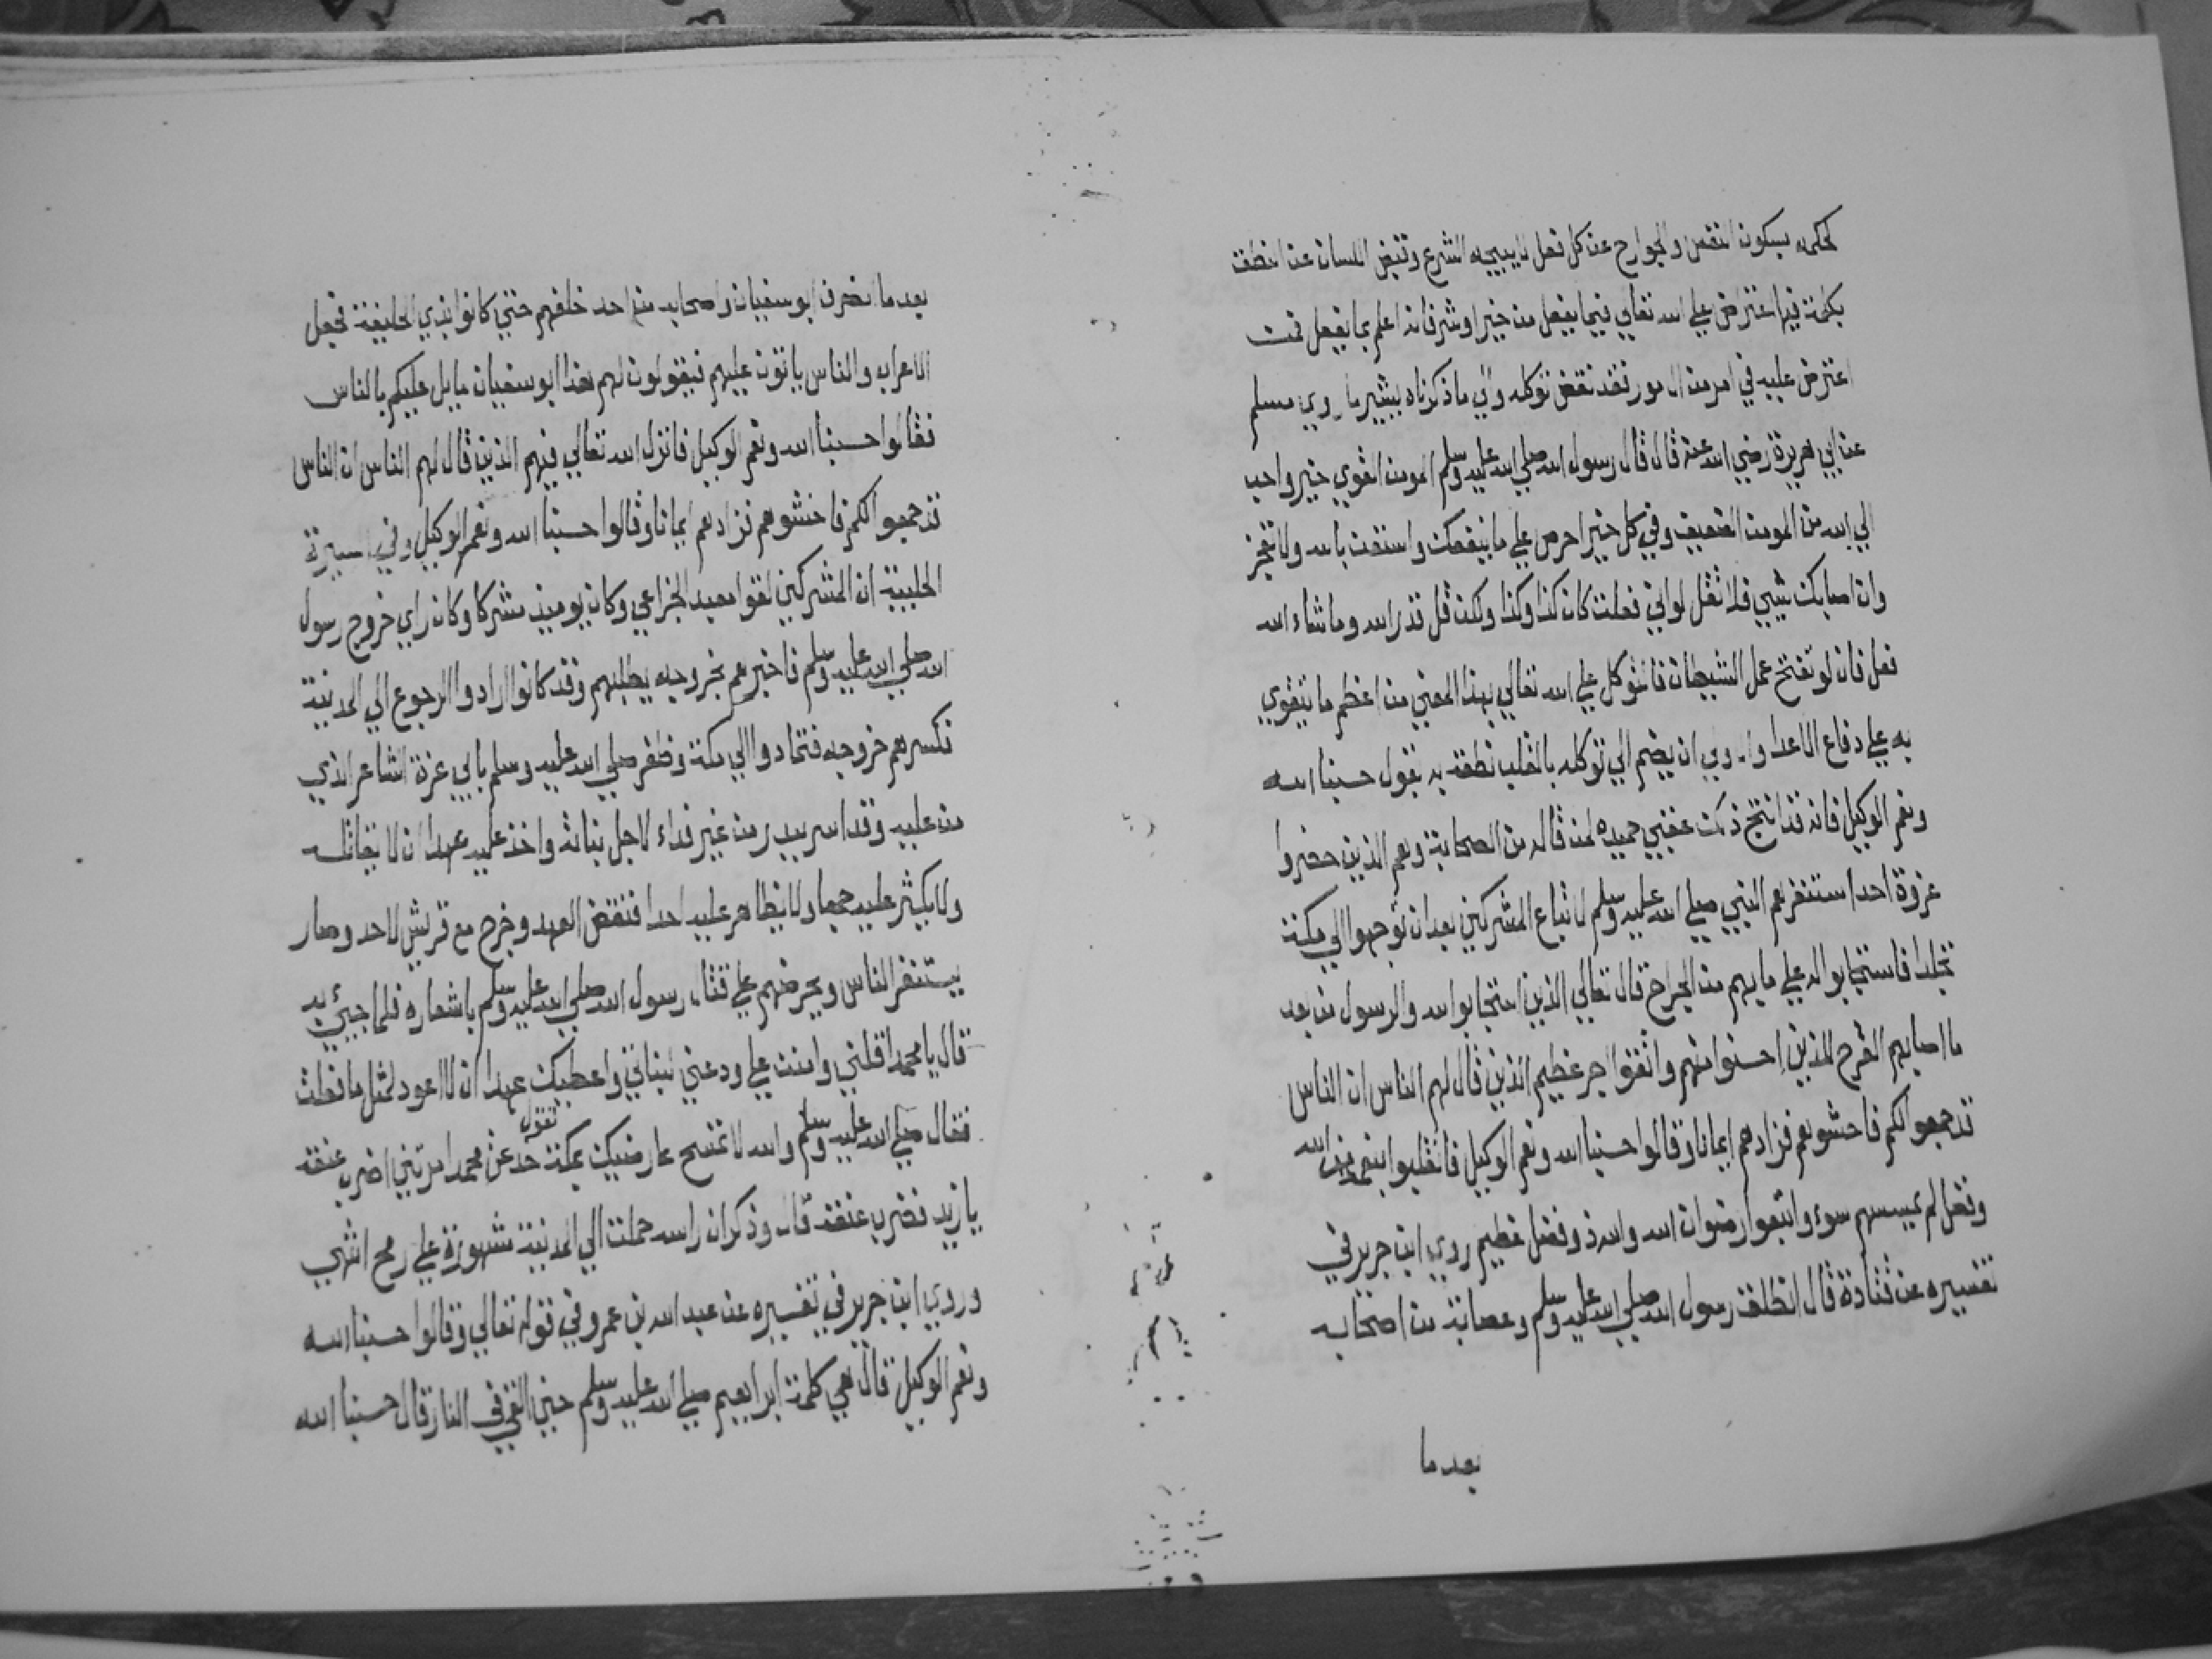 لحكمه بسكون النفس والجوارح عن كل فعل لا يبيحه الشرع وقبض اللسان عن النطق
بكلمة فيها اعتراض على الله تعالي فيما يفعل من خير او شر فانه اعلم بما يفعل فمت
اعترض عليه في امر من الامور فقد نقض توكله والي ما ذكرناه يشير ما روي مسلم
عن ابي هريرة رضي الله عنه قال قال رسول الله صلي الله عليه وسلم المومن القوي خير واحب
الي الله من المومن الضعيف وفي كل خير احرص علي ما ينفعك واستعن بالله ولا تعجز
وان اصابك شيي فلا تقل لو اني فعلت كان كذا وكذا ولكن قل قدر الله وما شاء الله
فعل فان لو تفتح عمل الشيطان فالتوكل علي الله تعالي بهذا المعني من اعظم ما يتقوي
به علي دفاع الاعدا وان يضم الي توكله بالقلب نطقه به بقول حسبنا الله
ونعم الوكيل فانه قد انتج ذلك عقبي حميده لمن قاله من الصحابة وهم الذين حضروا
غزوة احد استنفرهم النبي صلي الله عليه وسلم لاتباع المشركين بعد ان توجهوا الي مكة
تجلدا فاستجابوا له علي ما بهم من الجراح قال تعالي الذين استجابوا لله والرسول من بعد
ما اصابهم القرح للذين احسنوا منهم واتقوا اجر عظيم الذين قال لهم الناس ان الناس
قد جمعوا لكم فاخشوهم فزادهم ايمانا وقالوا حسبنا الله ونعم الوكيل فانقلبوا بنعمة من الله
وفضل لم يمسسهم سوء واتبعوا رضوان الله والله ذو فضل عظيم روي ابن جرير في
تفسيره عن قتادة قال انطلق رسول الله صلي الله عليه وسلم وعصابة من اصحابه
بعد ما
بعد ما انصرف ابو سفيان واصحابه من احد خلفهم حتي كانوا بذي الحليفة فجعل
الاعراب والناس ياتون عليهم فيقولون لهم هذا ابو سفيان مايل عليكم بالناس
فقالوا حسبنا الله ونعم الوكيل فانزل الله تعالي فيهم الذين قال لهم الناس ان الناس
قد جمعوا لكم فاخشوهم فزادهم ايمانا وقالوا حسبنا الله ونعم الوكيل وفي السيرة
الحلبية ان المشركين لقوا معبد الخزاعي وكان يوميذ مشركا وكان راي خروج رسول
الله صلي الله عليه وسلم فاخبرهم بخروجه يطلبهم وقد كانوا ارادوا الرجوع الي المدينة
فكسرهم خروجه فتمادوا الي مكة وظفر صلي الله عليه وسلم بابي عزة الشاعر الذي
من عليه وقد اسر ببدر من غير فداء لاجل بناته واخذ عليه عهدا ان لا يقاتله
ولا يكثر عليه جمعا ولا يظاهر عليه احدا فنقض العهد وخرج مع قريش لاحد وصار
يستنفر الناس ويحرضهم علي قتال رسول الله صلي الله عليه وسلم باشعاره فلما جيئ به
قال يا محمد اقلني وامنن علي ودعني لبناتي واعطيك عهدا ان لا اعود لمثل ما فعلت
فقال صلي الله عليه وسلم والله لا تمسح عارضيك بمكة تقول خدعت محمدا مرتين اضرب عنقه
يا زيد فضرب عنقه قال وذكر ان راسه حملت الي المدينة مشهورة علي رمح انتهي
وروي ابن جرير في تفسيره عن عبد الله بن عمرو في قوله تعالي وقالوا حسبنا الله
ونعم الوكيل قال هي كلمة ابراهيم صلي الله عليه وسلم حين القي في النار قال حسبنا الله